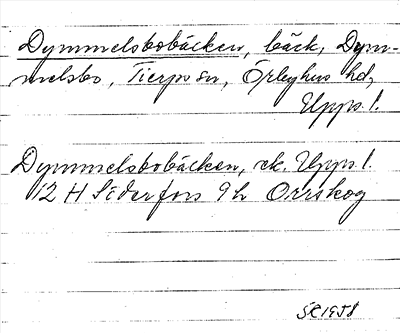 Dymmelsbobäcken, bäck, Dym-
melsbo, Tierps sn, Örbyhus hd,
Upps. l.
Dymmelsbobäcken, ek. Upps l.
12 H Söderfors 9 h Orrskog
SR 1958